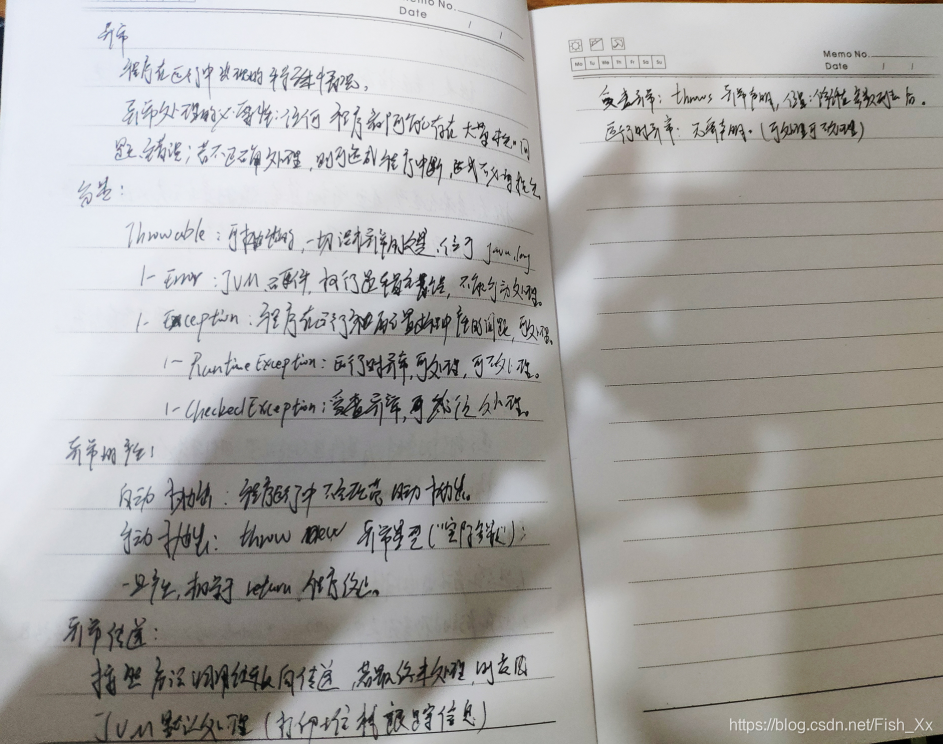 Memo No.
Date / /
异常
程序在运行中出现的特殊情况。
异常处理的必要性:任何程序都可能存在大量的未知问
题、错误;若不正确处理,则可造成程序中断,
分类:
Throwable:可抛出的,一切错误异常的父类,位于java.lang
|- Error:JVM、硬件、执行逻辑严重错误,不能手动处理。
|- Exception:程序在运行和配置过程中产生的问题,可处理。
|- RuntimeException:运行时异常,可处理,可不处理。
|- CheckedException:受查异常,必须处理。
异常的产生:
自动抛出:程序运行中不 自动抛出。
手动抛出:throw new 异常类型("实际参数");
一旦产生,相当于return,程序终止。
异常传递:
按照方法调用链反向传递,若最终未处理,则
JVM默认处理(打印堆栈跟踪信息)
Mo Tu We Th Fr Sa Su
Memo No.
Date / /
受查异常:throws 异常声明,位置:价格在参数列表后。
运行时异常:无需声明。(可处理可不处理)
https://blog.csdn.net/Fish_Xx